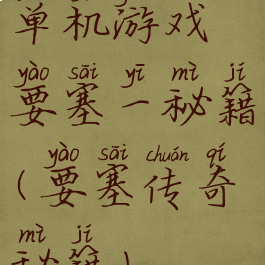 单机游戏
yào sāi yī mì jí
要塞一秘籍
yào sāi chuán qí
(要塞传奇
mì jí
秘籍)